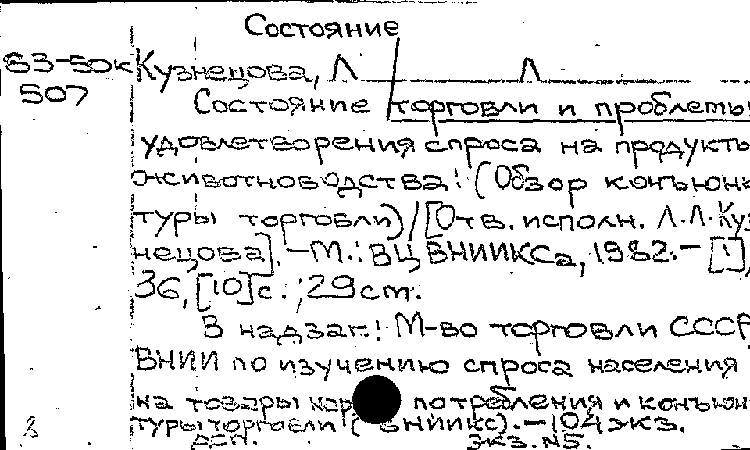 Состояние
83-50к Кузнецова, Л Л
507
Состояние торговли и проблемы
удовлетворения спроса на продукты
животноводства: (Обзор конъюнк
туры торговли)/[Отв. исполн. Л.Л. Куз
нецова]. - М.: ВЦ ВНИИКСа, 1982. - [1],
36, [10]с.; 29см.
В надзаг.: М-во торговли СССР,
ВНИИ по изучению спроса населения
на товары нар потребления и конъюнк
туры торговли (ВНИИКС). - 104 экз.
ДСП. Экз. N5.